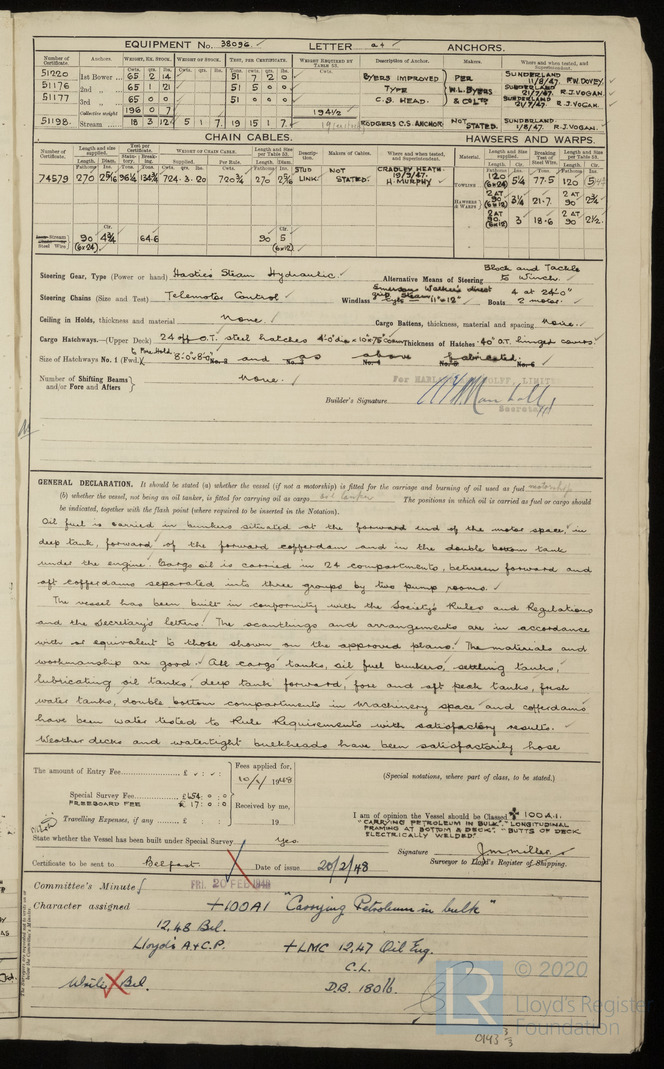 EQUIPMENT No. 38096 LETTER a† ANCHORS.
Number of Certificate. Anchors. WEIGHT, EX. STOCK. WEIGHT OF STOCK. TEST, PER CERTIFICATE. WEIGHT REQUIRED BY TABLE 53. Description of Anchor. Makers. Where and when tested, and Superintendent.
51220 1st Bower 65 2 14 51 7 2 0 BYERS IMPROVED PER SUNDERLAND 11/8/47. R.W. DOVEY.
51176 2nd 65 1 21 51 5 0 0 TYPE W.L. BYERS SUNDERLAND 21/7/47. R.J. VOGAN.
51177 3rd 65 0 0 51 0 0 0 C.S. HEAD. & CO LTD SUNDERLAND 21/7/47. R.J. VOGAN.
Collective weight 196 0 7 194½
51198 Stream 18 3 12 5 1 7 19 15 1 7 RODGERS C.S. ANCHOR NOT STATED. SUNDERLAND. 1/8/47. R.J. VOGAN.
CHAIN CABLES. HAWSERS AND WARPS.
Number of Certificate. Length and size supplied. Test per Certificate. WEIGHT OF CHAIN CABLE. Length and Size per Table 53. Description. Makers of Cables. Where and when tested, and Superintendent. Material. Length and size supplied. Breaking Test of Steel Wire. Length and Size per Table 53.
74579 270 2 5/16 96¼ 134¾ 724.3.20 720¾ 270 2 5/16 STUD LINK NOT STATED. CRADLEY HEATH. 19/9/47. H. MURPHY
TOWLINE 120 (6x24) 5¼ 77.5 120
HAWSERS & WARPS 2 AT 90 (6x12) 3¼ 21.7 2 AT 90 2¾
2 AT 90 (6x12) 3 18.6 2 AT 90 2½
Steel Wire 90 (6x24) 4¾ 64.6 90 5 (6x12)
Steering Gear, Type (Power or hand) Hastie's Steam Hydraulic. Alternative Means of Steering Block and Tackle to Winch.
Steering Chains (Size and Test) Telemotor Control Windlass Emerson Walker's direct grip Steam type 11" x 12" Boats 4 at 24'0" 2 motor.
Ceiling in Holds, thickness and material none. Cargo Battens, thickness, material and spacing none.
Cargo Hatchways.—(Upper Deck) 24 off O.T. steel hatches 4'0" dia x 10 x 75 coam Thickness of Hatches .40" O.T. hinged covers.
Size of Hatchways No. 1 (Fwd.) to Fore Hold 8'0" x 8'0" No. 2 and No. 3 as No. 4 above No. 5 fabricated. No. 6
Number of Shifting Beams and/or Fore and Afters none.
For HARLAND & WOLFF, LIMITED
Builder's Signature
Secretary
GENERAL DECLARATION. It should be stated (a) whether the vessel (if not a motorship) is fitted for the carriage and burning of oil used as fuel motorship
(b) whether the vessel, not being an oil tanker, is fitted for carrying oil as cargo oil tanker The positions in which oil is carried as fuel or cargo should
be indicated, together with the flash point (where required to be inserted in the Notation).
Oil fuel is carried in bunkers situated at the forward end of the motor space, in
deep tank, forward of the forward cofferdam and in the double bottom tank
under the engine. Cargo oil is carried in 24 compartments, between forward and
aft cofferdams separated into three groups by two pump rooms.
The vessel has been built in conformity with the Society's Rules and Regulations
and the Secretary's letters. The scantlings and arrangements are in accordance
with or equivalent to those shown on the approved plans. The materials and
workmanship are good. All cargo tanks, oil fuel bunkers, settling tanks,
lubricating oil tanks, deep tank forward, fore and aft peak tanks, fresh
water tanks, double bottom compartments in machinery space and cofferdams
have been water tested to Rule Requirements with satisfactory results.
Weather decks and watertight bulkheads have been satisfactorily hose
The amount of Entry Fee £ : : Fees applied for, 20/2/1948 (Special notations, where part of class, to be stated.)
Special Survey Fee £454: 0 : 0
FREEBOARD FEE £ 17: 0 : 0 Received by me,
Travelling Expenses, if any £ : : 19
I am of opinion the Vessel should be Classed ✠ 100A1.
"CARRYING PETROLEUM IN BULK". "LONGITUDINAL
FRAMING AT BOTTOM & DECK". "BUTTS OF DECK
ELECTRICALLY WELDED."
State whether the Vessel has been built under Special Survey Yes.
Signature J.M. Miller.
Surveyor to Lloyd's Register of Shipping.
Certificate to be sent to Belfast. Date of issue 20/2/48
Committee's Minute FRI. 20 FEB 1948
Character assigned +100A1 "Carrying Petroleum in bulk"
12.48 Bel.
Lloyd's A & C.P. +LMC 12.47 Oil Eng.
C.L.
Write Bel. D.B. 180 lb.
© 2020
Lloyd's Register
Foundation
LR
0143 3/3